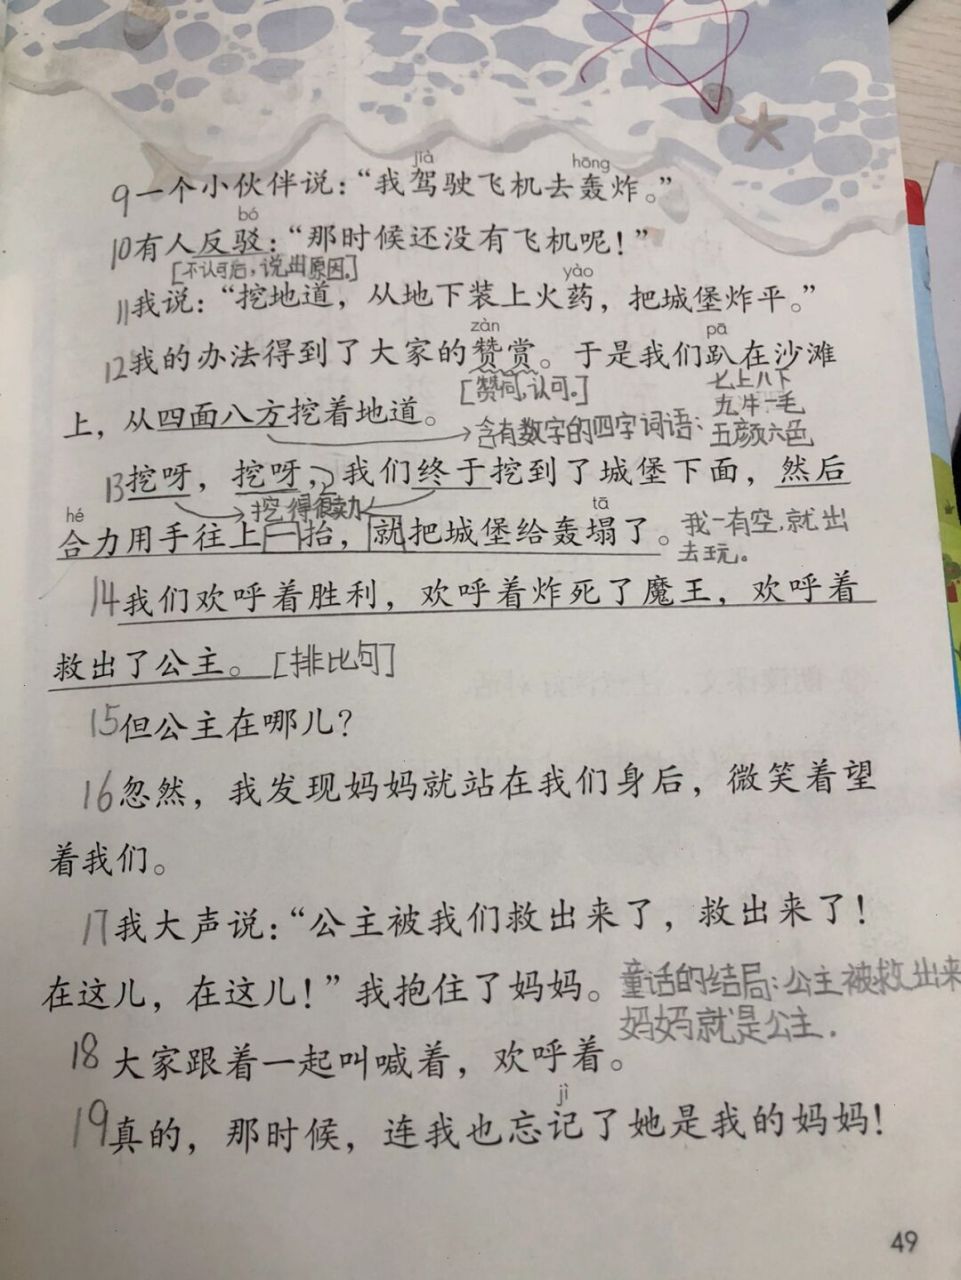 jià hōng
9一个小伙伴说：“我驾驶飞机去轰炸。”
bó
10有人反驳：“那时候还没有飞机呢！”
[不认可后，说出原因。]
yào
11我说：“挖地道，从地下装上火药，把城堡炸平。”
zàn pā
12我的办法得到了大家的赞赏。于是我们趴在沙滩
[赞同，认可。]
七上八下
九牛一毛
上，从四面八方挖着地道。
含有数字的四字词语：五颜六色
13挖呀，挖呀，我们终于挖到了城堡下面，然后
挖得很卖力
hé tā
合力用手往上一抬，就把城堡给轰塌了。
我一有空，就出
去玩。
14我们欢呼着胜利，欢呼着炸死了魔王，欢呼着
救出了公主。[排比句]
15但公主在哪儿？
16忽然，我发现妈妈就站在我们身后，微笑着望
着我们。
17我大声说：“公主被我们救出来了，救出来了！
在这儿，在这儿！”我抱住了妈妈。
童话的结局：公主被救出来
妈妈就是公主.
18大家跟着一起叫喊着，欢呼着。
jì
19真的，那时候，连我也忘记了她是我的妈妈！
49